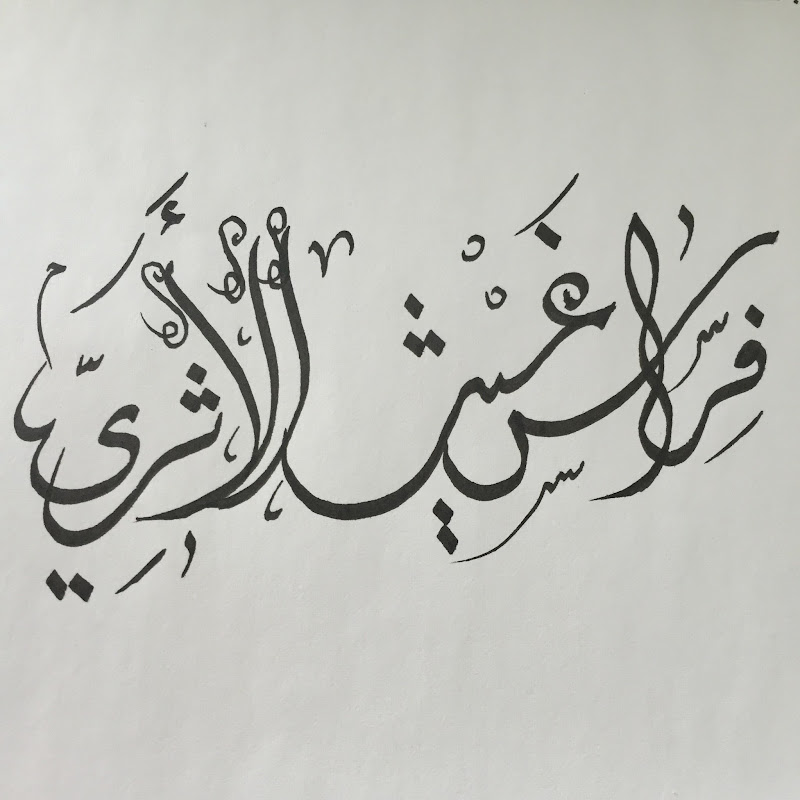 فِرَاس غَيْث الأَثَرِيّ